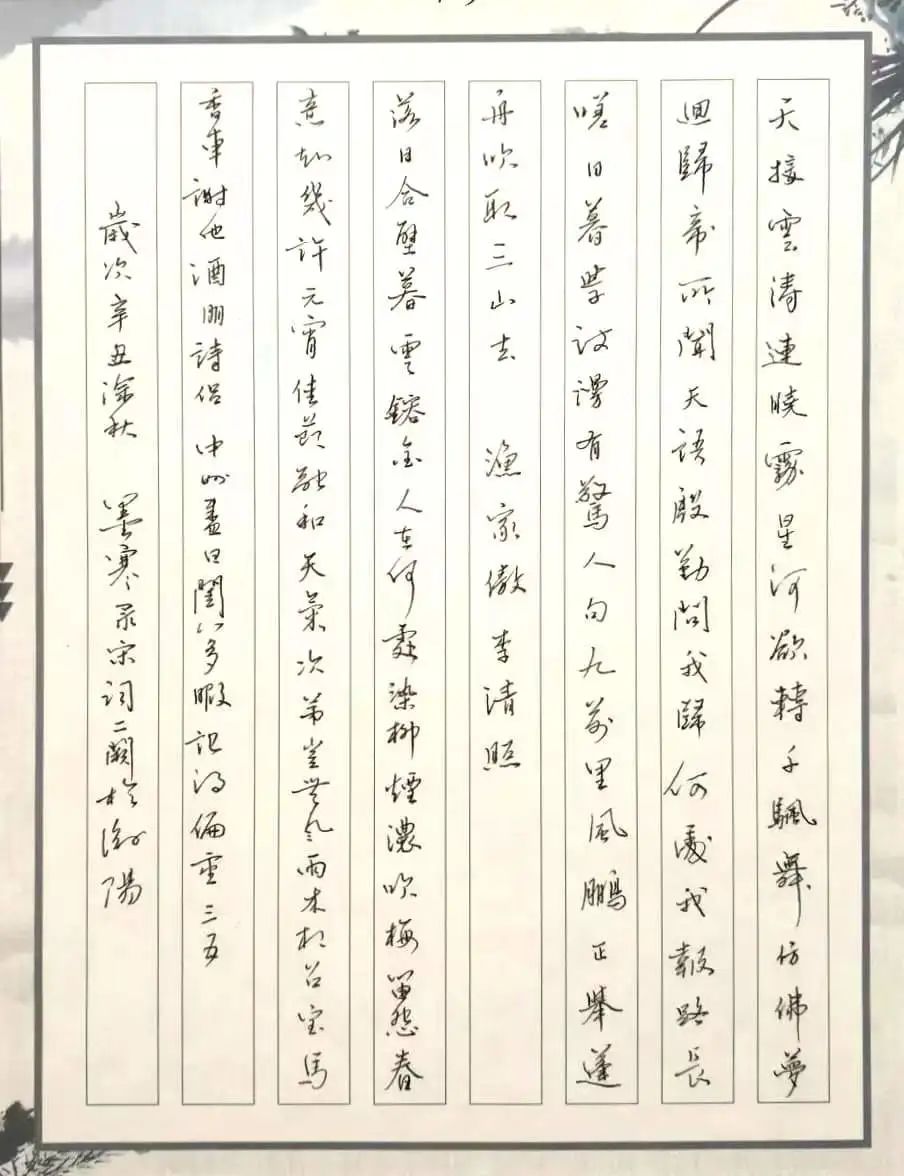 天接雲涛連曉霧星河欲轉千颿舞仿佛夢
迴歸帝所聞天語殷勤問我歸何處我報路長
嗟日暮學詩謾有驚人句九萬里風鵬正舉蓬
舟吹取三山去 漁家傲李清照
落日合璧暮雲鎔金人在何處染柳煙濃吹梅留怨春
意知幾許元宵佳節融和天氣次第豈無風雨来相召宝馬
香車謝他酒朋詩侣 中州盛日閨門多暇记得偏重三五
歲次辛丑深秋 墨寒录宋词二闕於瀏陽